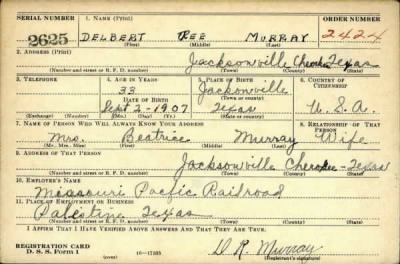 SERIAL NUMBER 1. NAME (Print) ORDER NUMBER
2625 DELBERT REE MURRAY 2424
(First) (Middle) (Last)
2. ADDRESS (Print)
Jacksonville Cherokee Texas
(Number and street or R. F. D. number) (Town) (County) (State)
3. TELEPHONE 4. AGE IN YEARS 5. PLACE OF BIRTH 6. COUNTRY OF CITIZENSHIP
33 Jacksonville
DATE OF BIRTH (Town or county)
Sept 2-1907 Texas U.S.A.
(Exchange) (Number) (Mo.) (Day) (Yr.) (State or country)
7. NAME OF PERSON WHO WILL ALWAYS KNOW YOUR ADDRESS 8. RELATIONSHIP OF THAT PERSON
Mrs. Beatrice Murray Wife
(Mr., Mrs., Miss) (First) (Middle) (Last)
9. ADDRESS OF THAT PERSON
Jacksonville Cherokee - Texas
(Number and street or R. F. D. number) (Town) (County) (State)
10. EMPLOYER'S NAME
Missouri Pacfic Railroad
11. PLACE OF EMPLOYMENT OR BUSINESS
Palestine Texas
(Number and street or R. F. D. number) (Town) (County) (State)
I AFFIRM THAT I HAVE VERIFIED ABOVE ANSWERS AND THAT THEY ARE TRUE.
REGISTRATION CARD D. R. Murray
D. S. S. Form 1 (over) (Registrant's signature)